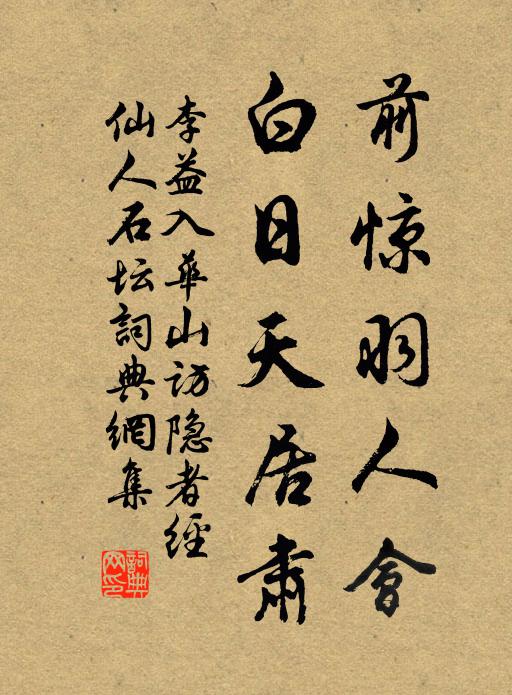 前惊羽人會
白日天居肅
李益入華山访隐者經
仙人石坛詞典網集
詞典网印